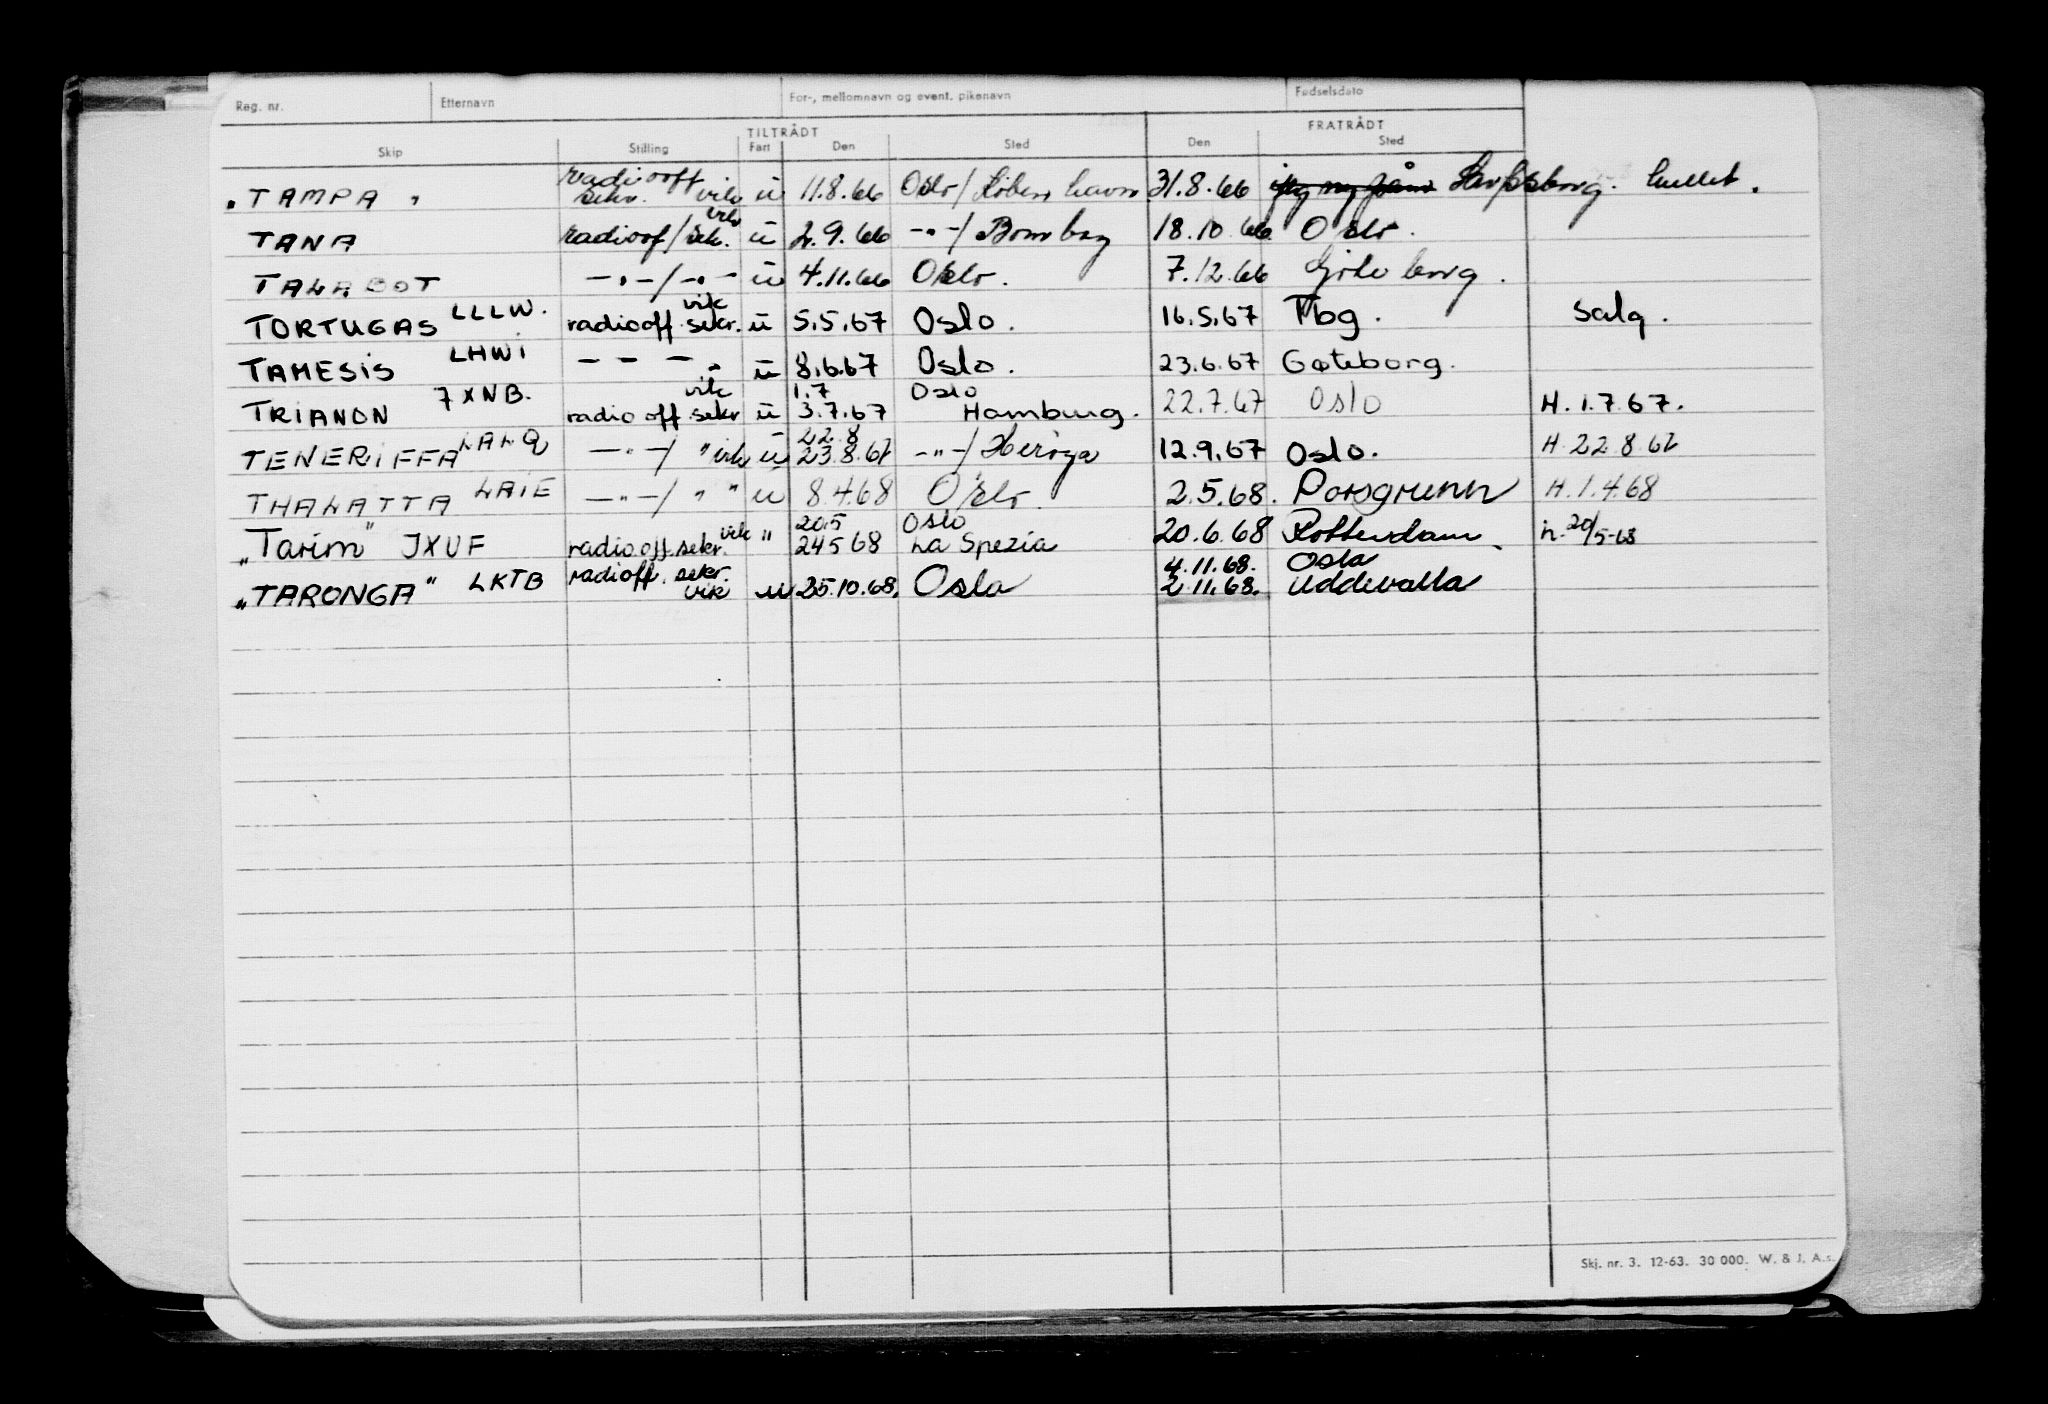 Reg. nr. Etternavn For-, mellomnavn og event. pikenavn Fødselsdato
TILTRÅDT FRATRÅDT
Skip Stilling Fart Den Sted Den Sted
"TAMPA" radiooff sekr. vik u 11.8.66 Oslo/København 31.8.66 Sarpsborg.
TANA radioof/sekr. vik u 2.9.66 -"-/Bombay 18.10.66 Oslo.
TALABOT -"-/-"- u 4.11.66 Oslo. 7.12.66 Göteborg.
TORTUGAS LLLW. radiooff.sekr. vik u 5.5.67 Oslo. 16.5.67 Tbg. salg.
TAMESIS LHWI - - - " u 8.6.67 Oslo. 23.6.67 Gøteborg.
1.7 Oslo
TRIANON 7XNB. radiooff.sekr vik u 3.7.67 Hamburg. 22.7.67 Oslo H.1.7.67.
22.8
TENERIFFA LALQ -"-/ " vik u 23.8.67 -"-/Herøya 12.9.67 Oslo. H.22.8.67
THALATTA LAIE -"-/ " " u 8.4.68 Oslo. 2.5.68. Porsgrunn H.1.4.68
20.5 Oslo
"Tarim" JXUF radiooff.sekr. vik " 24 5 68 La Spezia 20.6.68 Rotterdam h. 20/5-68
4.11.68. Oslo
"TARONGA" LKTB radioff. sekr. vik u 25.10.68. Oslo 2.11.68. Uddevalla
Skj. nr. 3. 12-63. 30 000. W. & J. A.s.